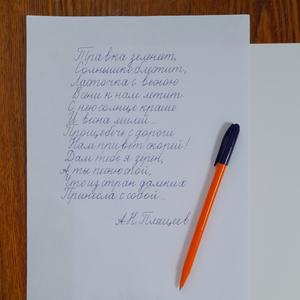 Травка зеленеет,
Солнышко блестит,
Ласточка с весною
В сени к нам летит.
С нею солнце краше
И весна милей...
Прощебечь с дороги
Нам привет скорей!
Дам тебе я зерен,
А ты песню спой,
Что из стран далеких
Принесла с собой...
А.Н. Плещеев